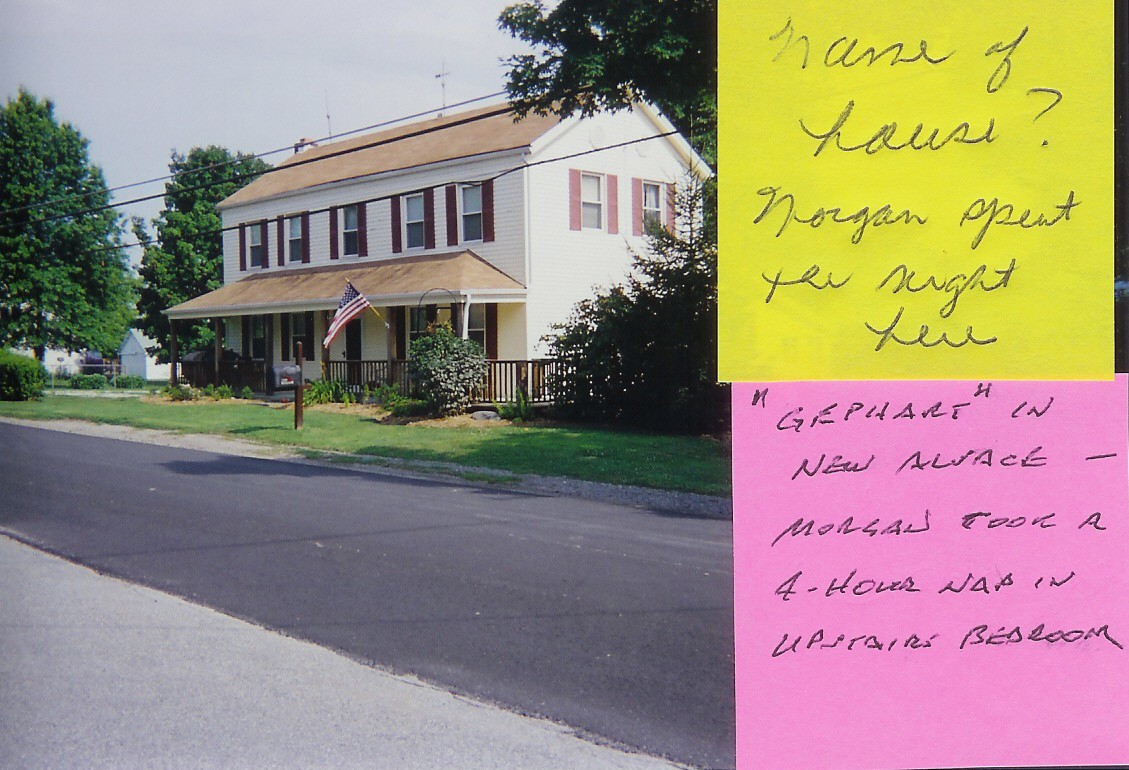 Name of
house?
Morgan spent
the night
here
"GEPHART" IN
NEW ALSACE —
MORGAN TOOK A
4-HOUR NAP IN
UPSTAIRS BEDROOM